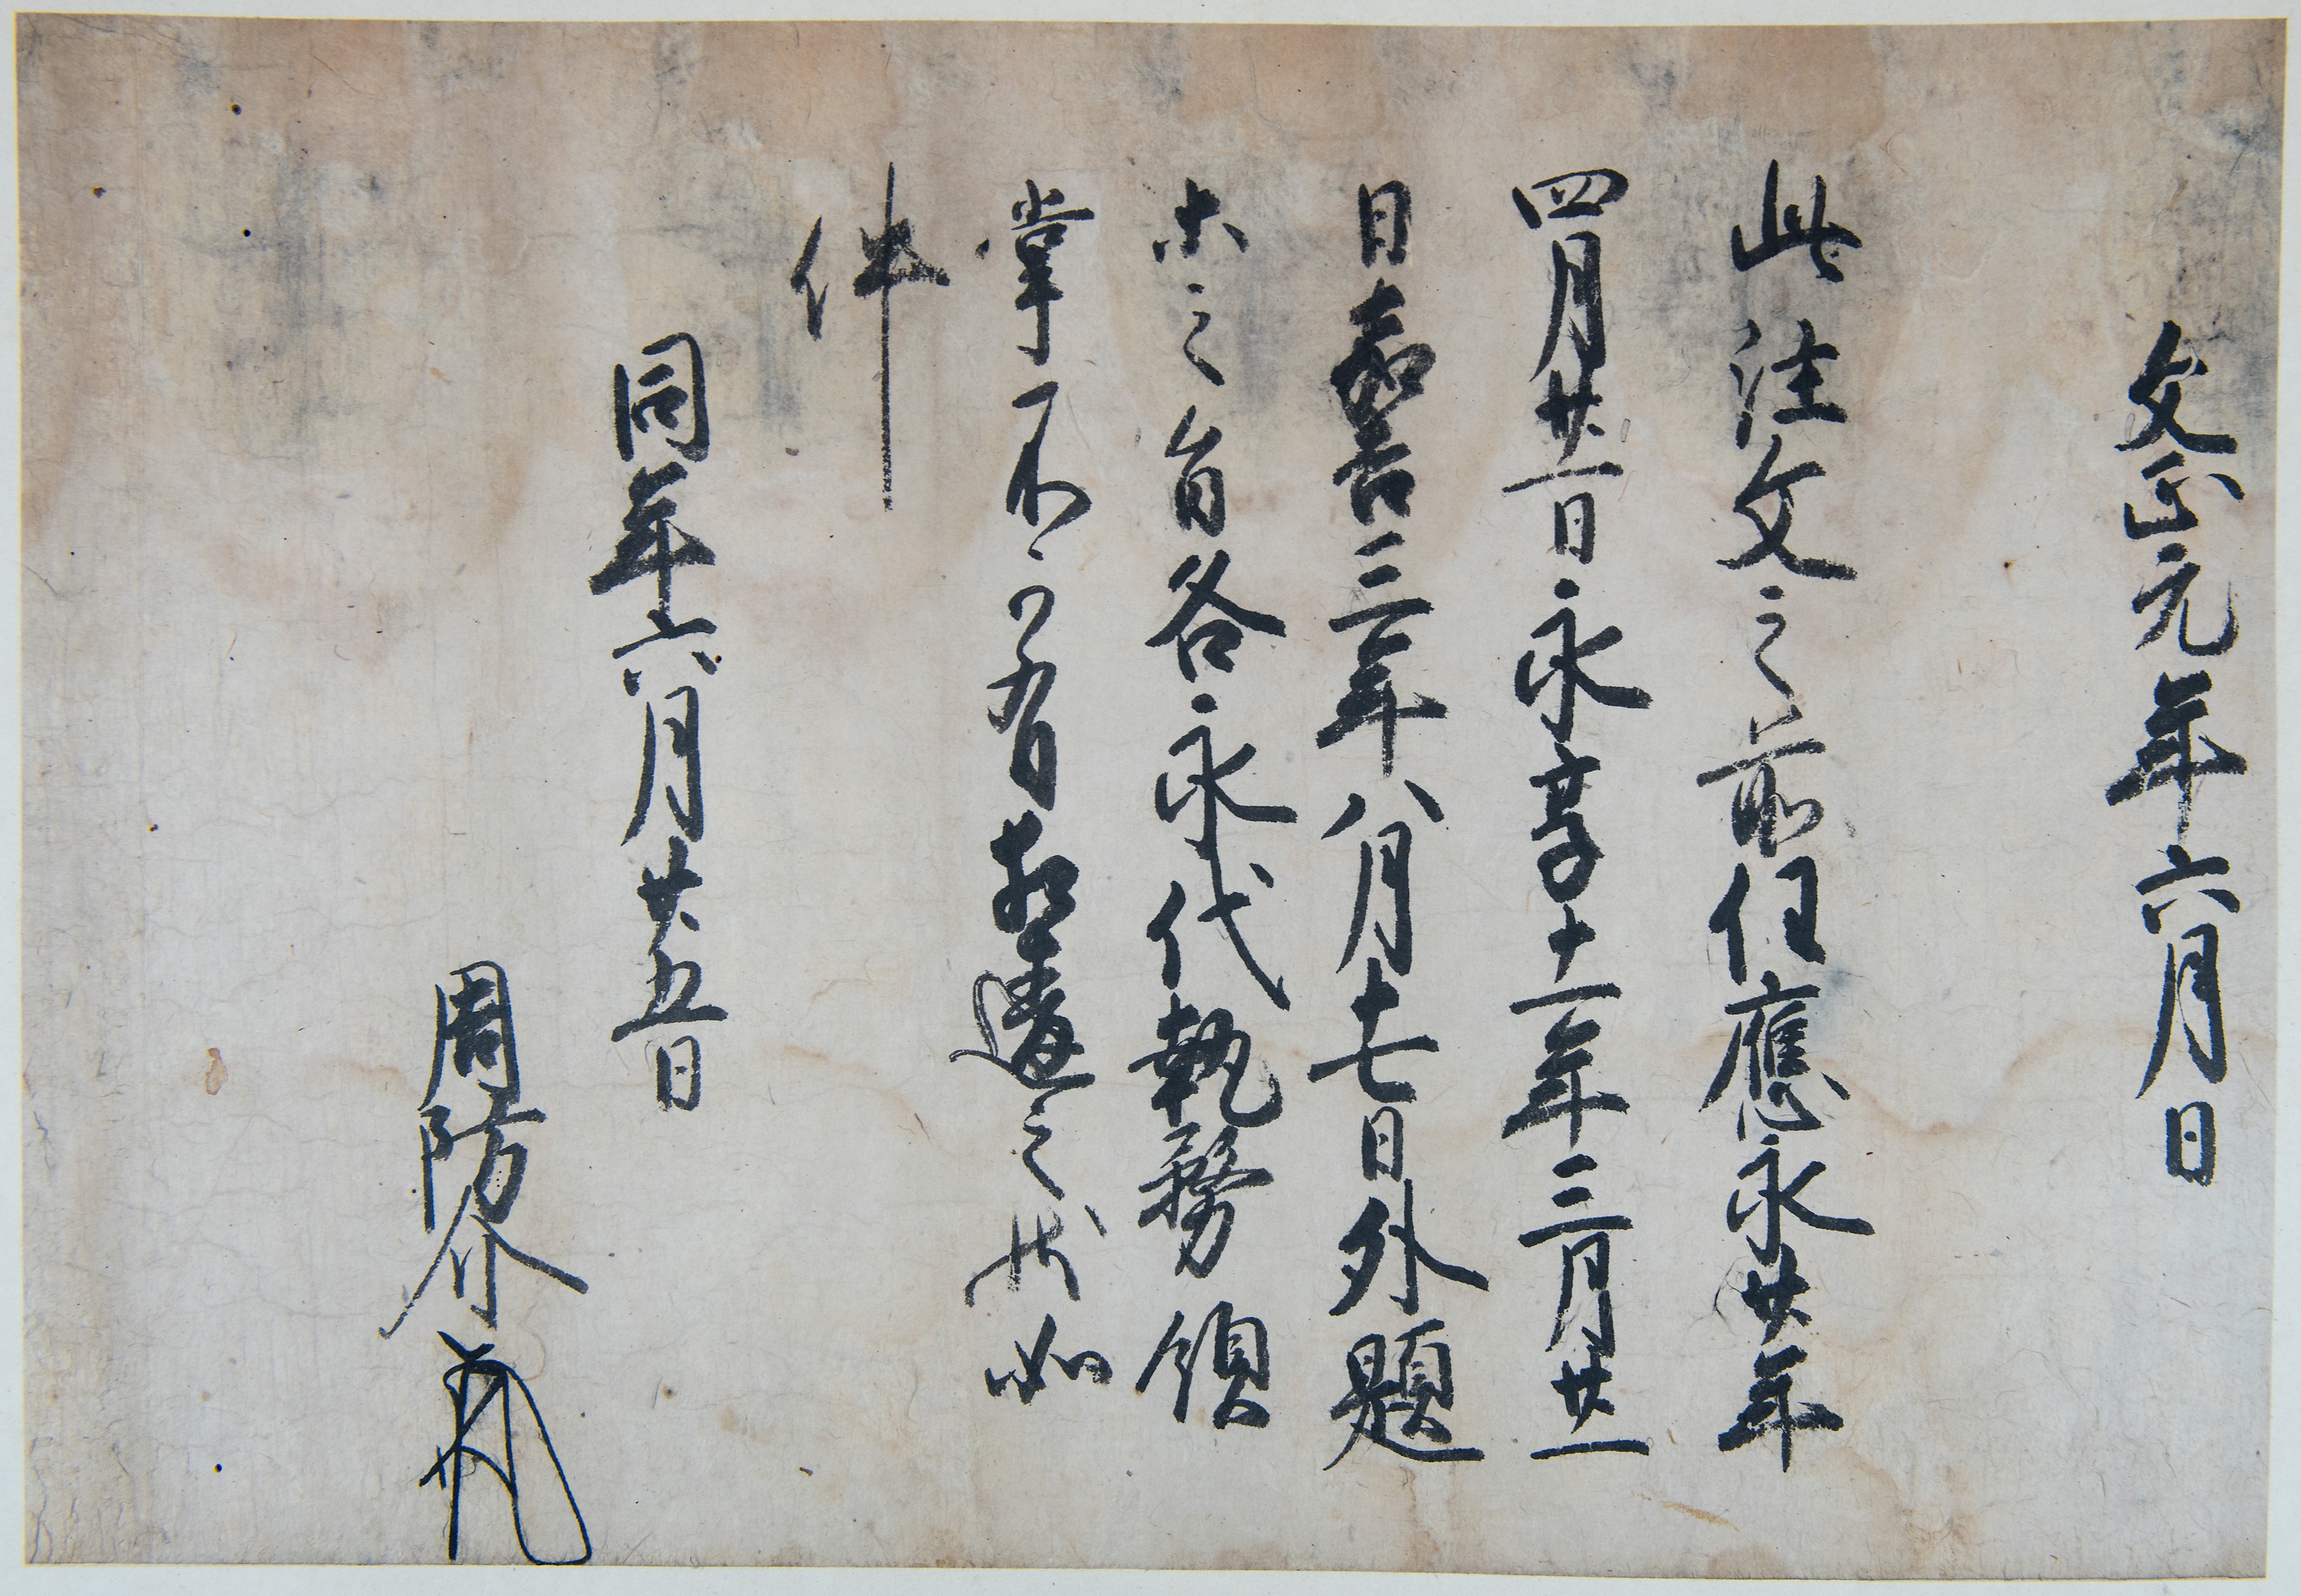 文正元年六月日
此注文之前任應永廿年
四月廿一日永享十一年三月廿一
日嘉吉三年八月十七日外題
等之旨各永代執務領
掌不可有相違之状如
件
同年六月廿五日
周防介